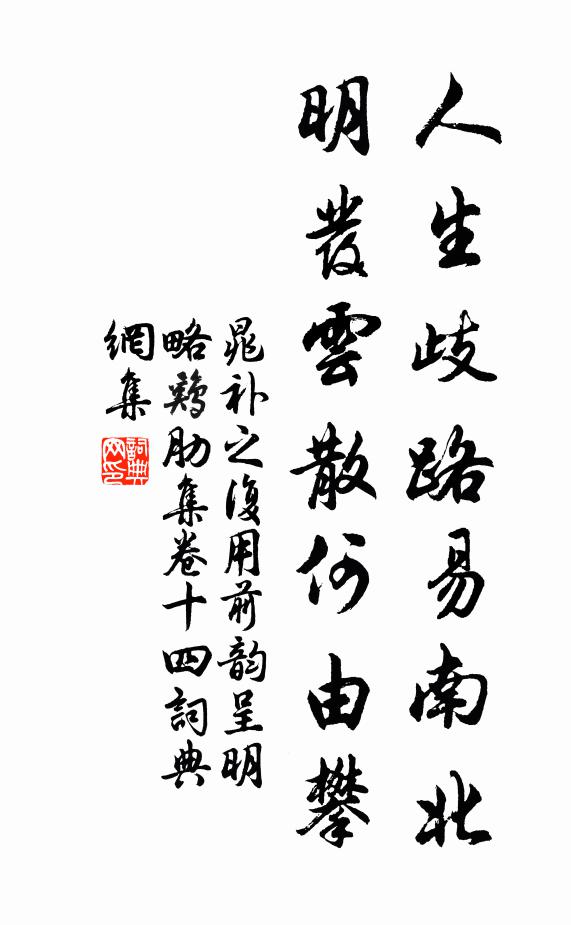 人生歧路易南北
明發雲散何由攀
晁补之復用前韵呈明
略鷄肋集卷十四詞典
網集
詞典網印